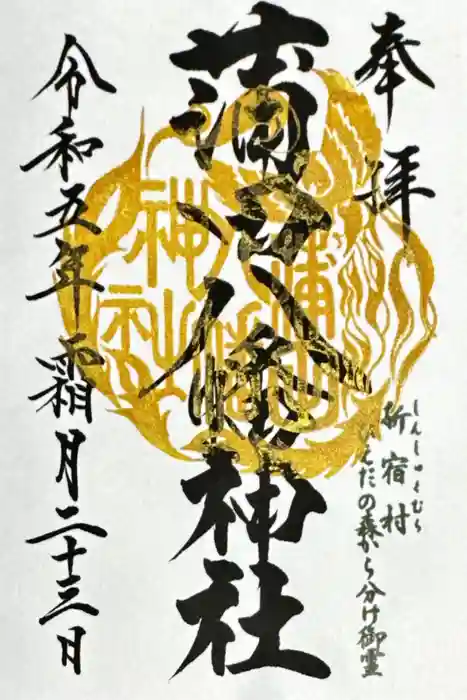 奉拝
しんしゅくむら
新宿村
ひえだの森から分け御霊
蒲田八幡神社
令和五年 霜月二十三日